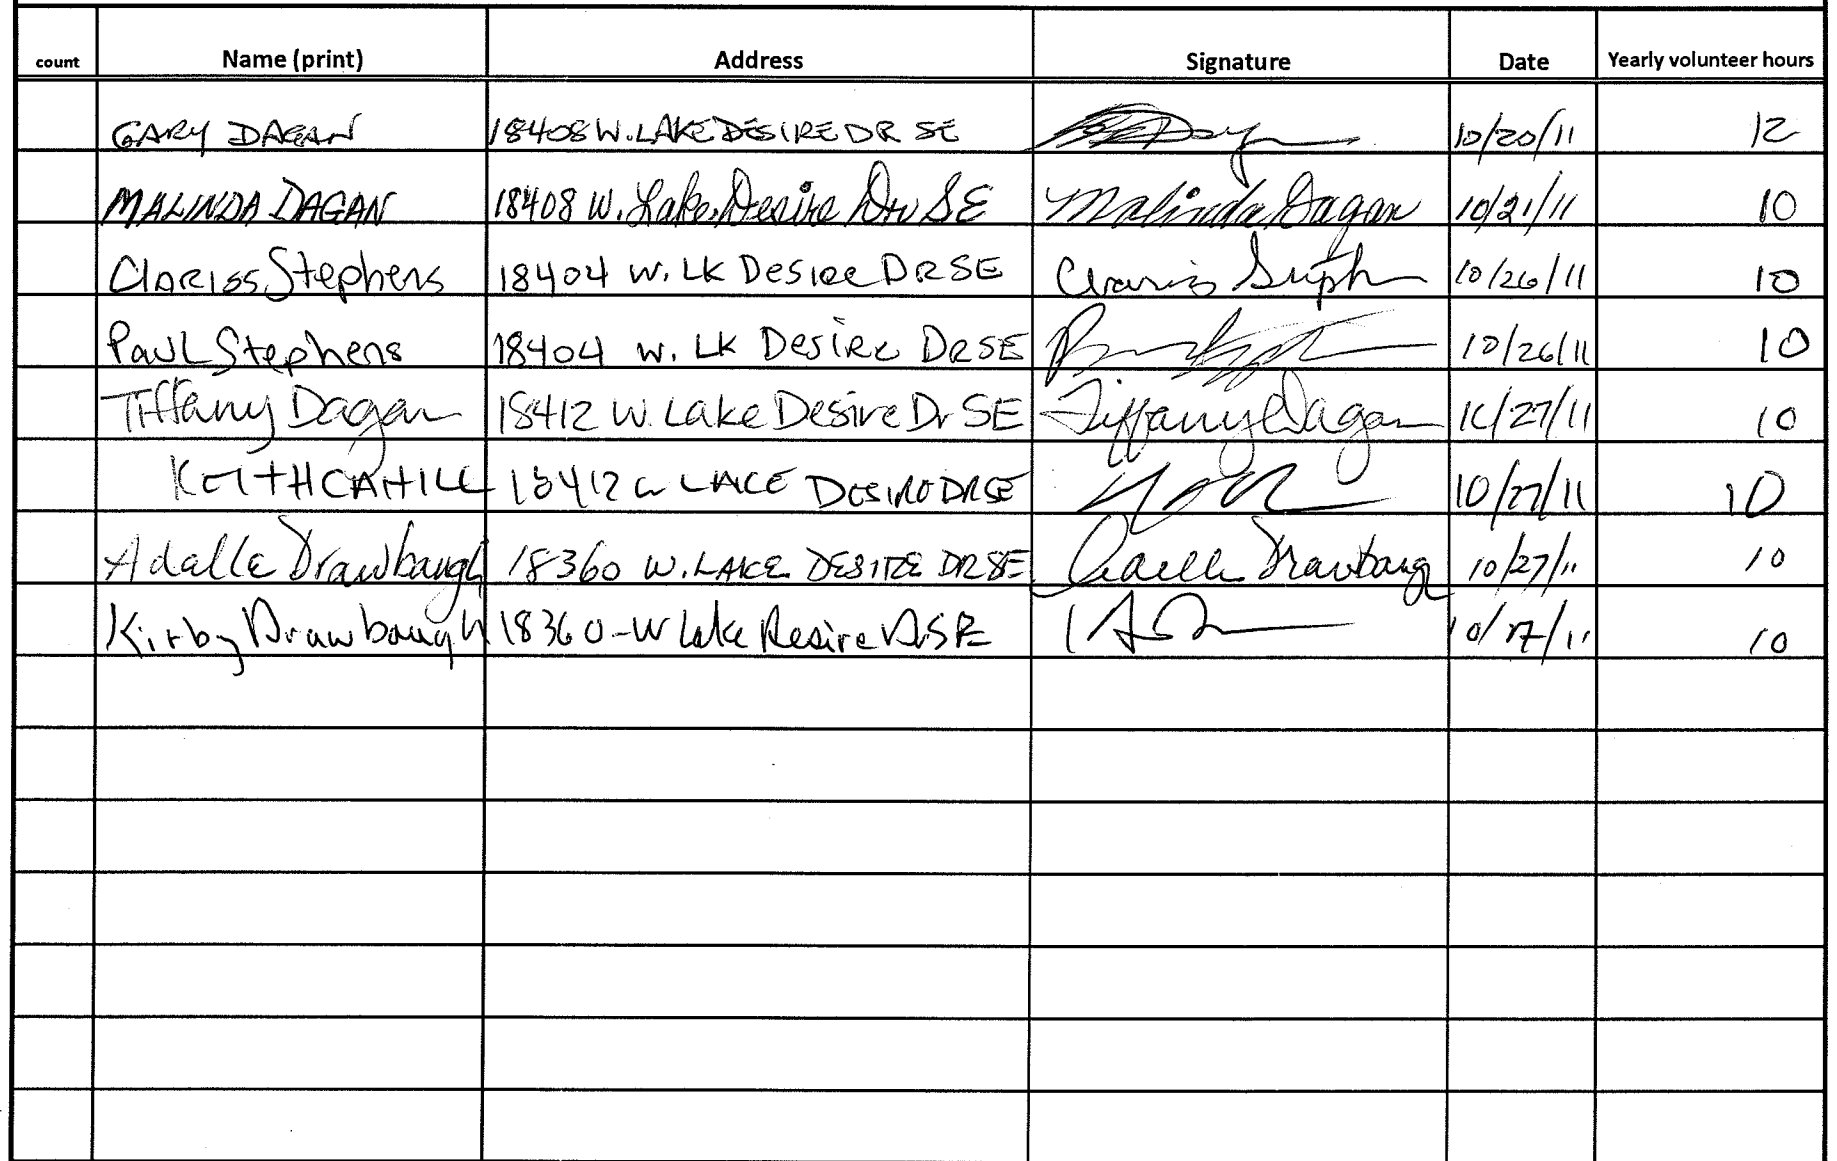 count Name (print) Address Signature Date Yearly volunteer hours
GARY DAGAN 18408 W. LAKE DESIRE DR SE 10/20/11 12
MALINDA DAGAN 18408 W. Lake Desire Dr SE Malinda Dagan 10/21/11 10
Clariss Stephens 18404 W. LK Desire DR SE 10/26/11 10
Paul Stephens 18404 W. LK Desire DR SE 10/26/11 10
Tiffany Dagan 18412 W. Lake Desire Dr SE Tiffany Dagan 10/27/11 10
KEITH CAHILL 18412 W LAKE DESIRE DR SE 10/27/11 10
Adalle Drawbaugh 18360 W. LAKE DESIRE DR SE Drawbaugh 10/27/11 10
Kirby Drawbaugh 18360-W Lake Desire Dr SE 10/27/11 10